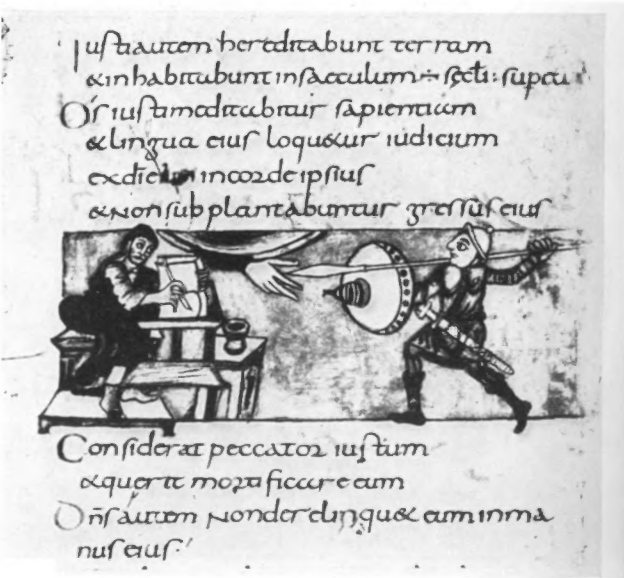 Iusti autem hereditabunt terram
& inhabitabunt in saeculum ÷ scli: sup eā
Os iusti meditabitur sapientiam
& lingua eius loqu&ur iudicium
ex dī eius in corde ipsius
& non subplantabuntur gressus eius
Considerat peccator iustum
& querit mortificare eum
Dn̄s autem non derelinqu& eum in ma
nus eius.